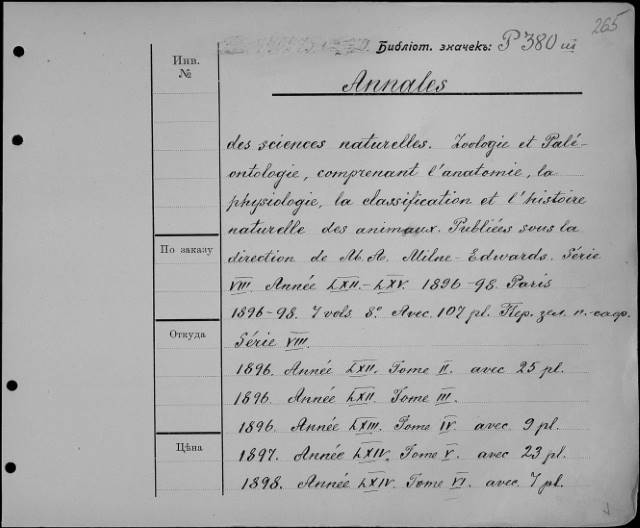 265
Библіот. значекъ: P 380 III
Инв. №
Annales
des sciences naturelles. Zoologie et Palé-
ontologie, comprenant l'anatomie, la
physiologie, la classification et l'histoire
naturelle des animaux. Publiées sous la
По заказу
direction de M. A. Milne-Edwards. Série
VIII. Année LXII.-LXV. 1896-98. Paris
1896-98. 7 vols 8°. Avec 107 pl. Пер. зел. п.-сафр.
Откуда
Série VIII.
1896. Année LXII. Tome II. avec 25 pl.
1896. Année LXII. Tome III.
1896. Année LXIII. Tome IV. avec 9 pl.
Цѣна
1897. Année LXIV. Tome V. avec 23 pl.
1898. Année LXIV. Tome VI. avec 7 pl.